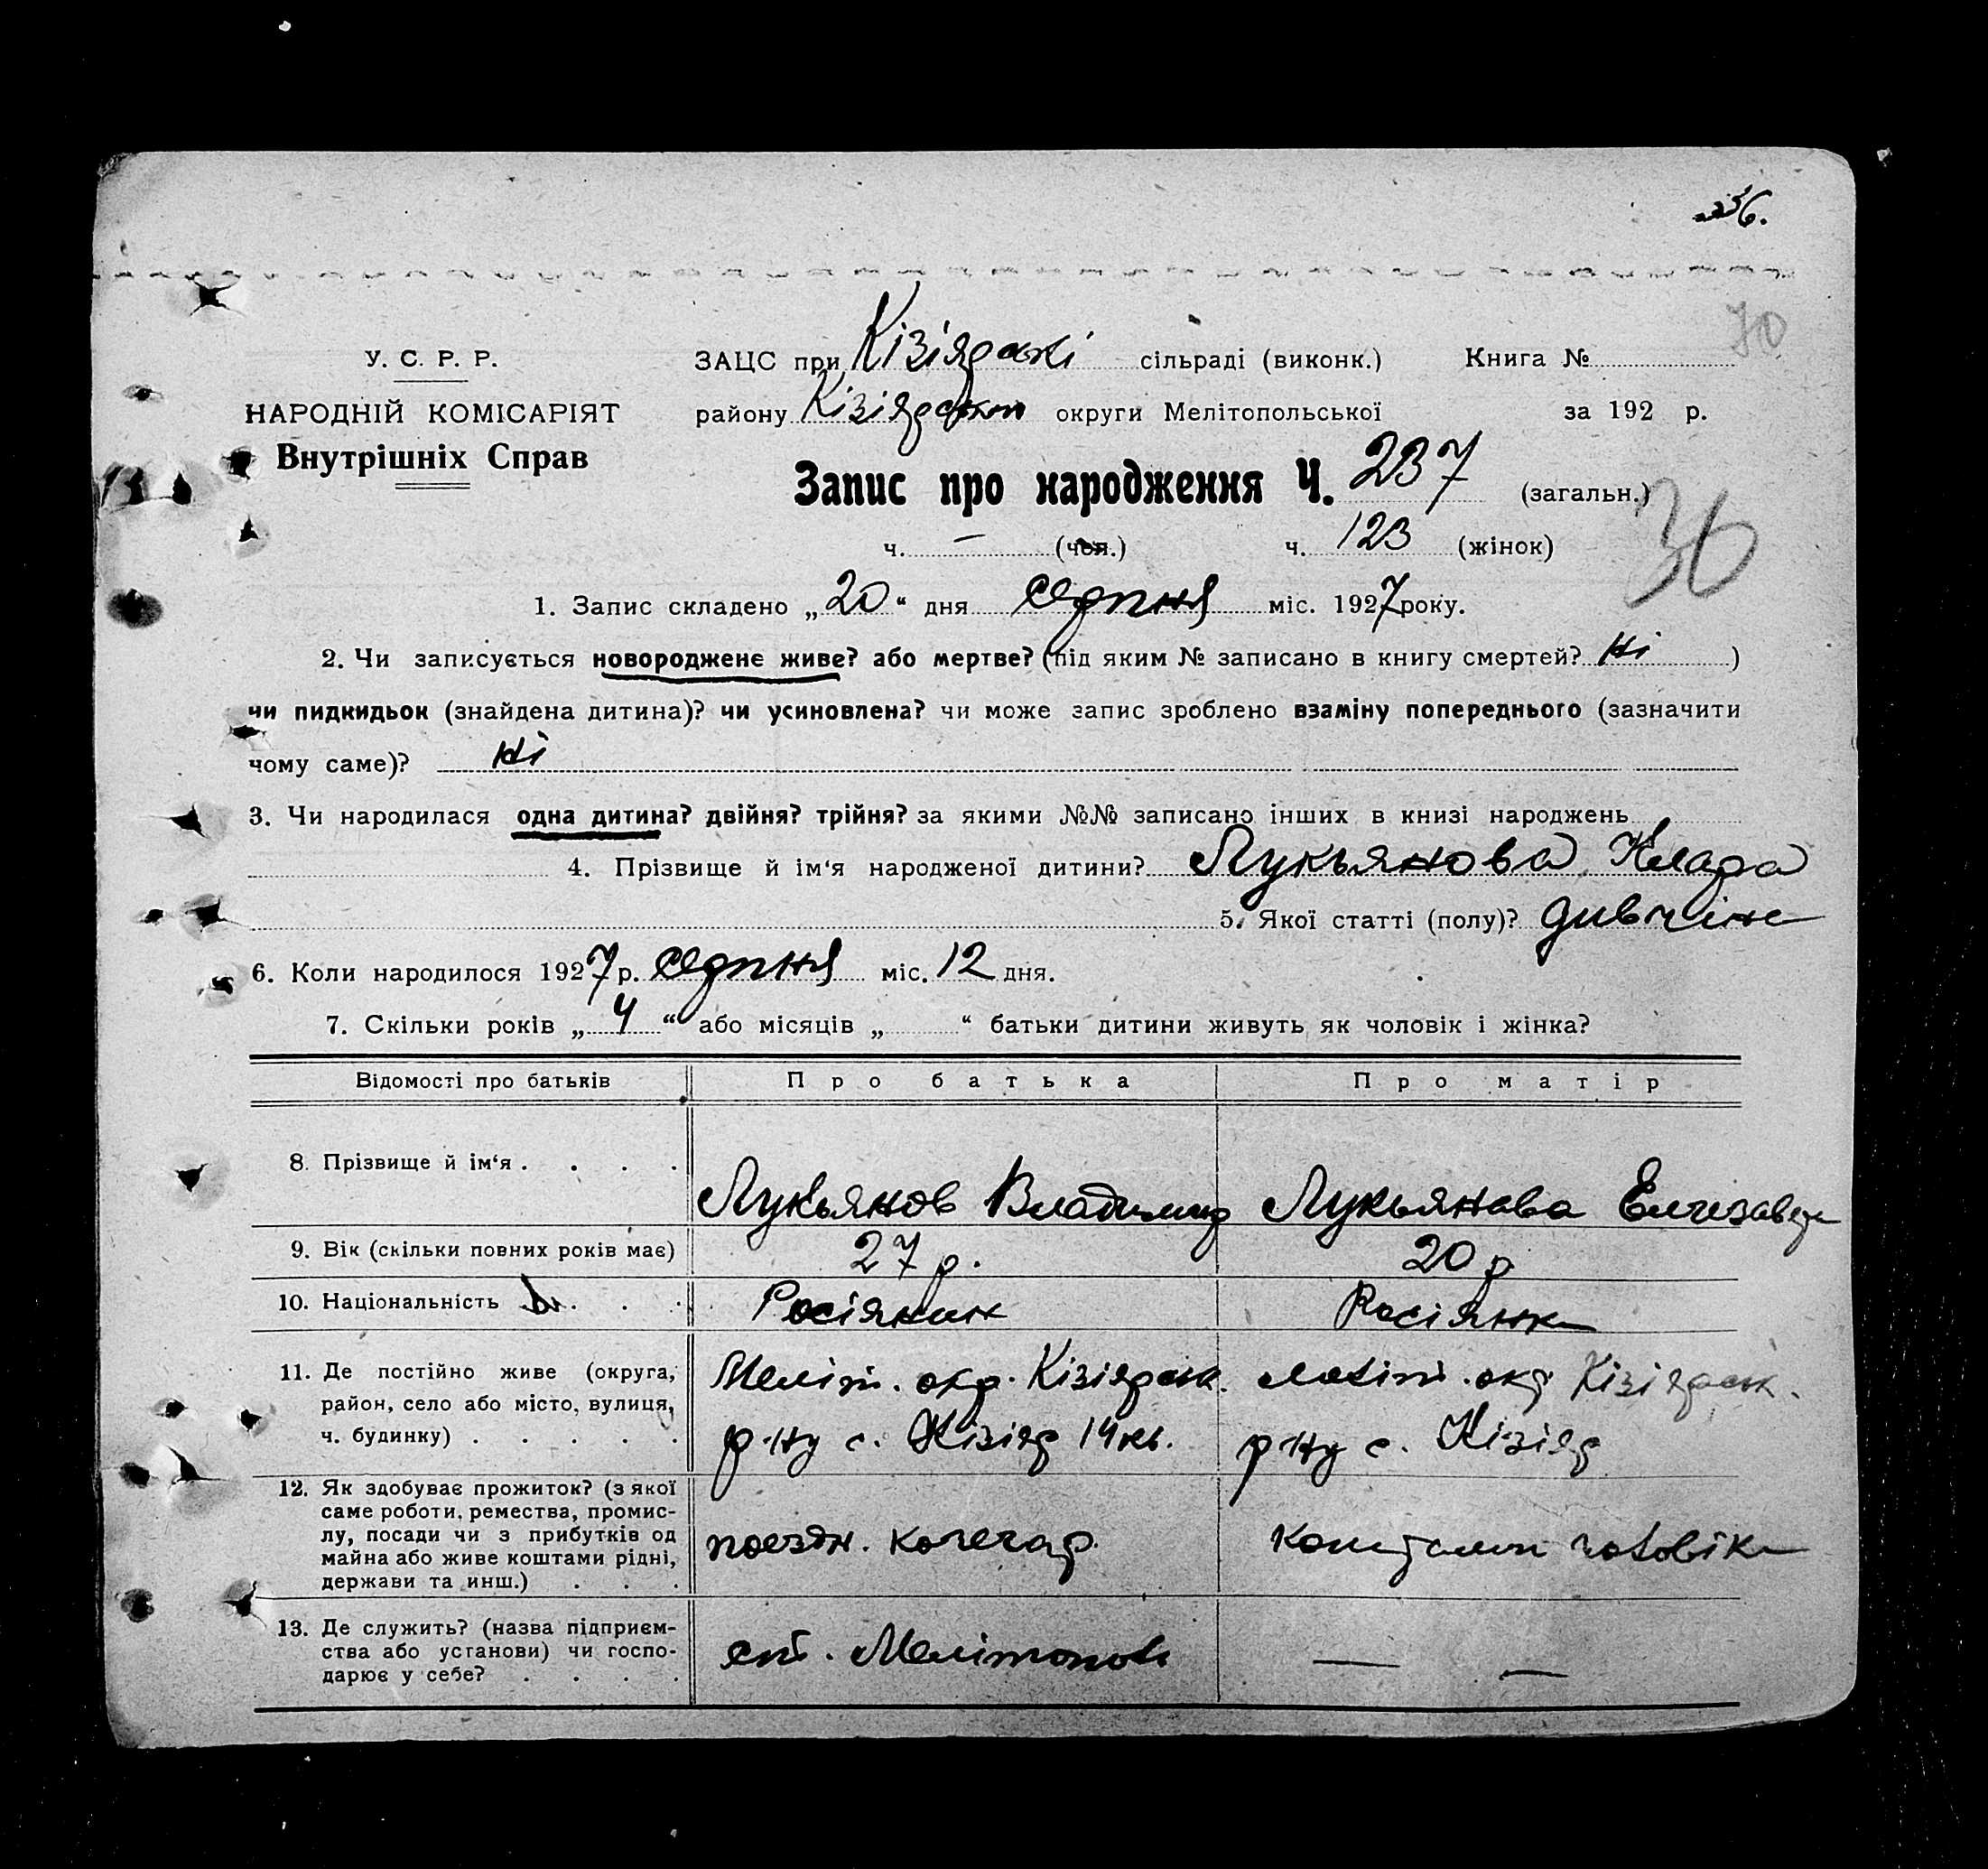 36.
70
У. С. Р. Р.
НАРОДНІЙ КОМІСАРІЯТ
Внутрішніх Справ
ЗАЦС при Кізіярські сільраді (виконк.) Книга №
району Кізіярськ округи Мелітопольської за 192 р.
Запис про народження Ч. 237 (загальн.)
ч. — (чол.) ч. 123 (жінок)
36
1. Запис складено „20“ дня серпня міс. 1927 року.
2. Чи записується новороджене живе? або мертве? (під яким № записано в книгу смертей? ні )
чи пидкидьок (знайдена дитина)? чи усиновлена? чи може запис зроблено взаміну попереднього (зазначити
чому саме)? ні
3. Чи народилася одна дитина? двійня? трійня? за якими №№ записано інших в книзі народжень
4. Прізвище й ім‘я народженої дитини? Лукьянова Клара
5. Якої статті (полу)? дивчіна
6. Коли народилося 1927 р. серпня міс. 12 дня.
7. Скільки років „ 4 “ або місяців „ “ батьки дитини живуть як чоловік і жінка?
Відомості про батьків Про батька Про матір
8. Прізвище й ім‘я . . . . Лукьянов Владимир Лукьянова Елизавета
9. Вік (скільки повних років має) 27 р. 20 р
10. Національність . . . Росіянин Росіянка
11. Де постійно живе (округа, район, село або місто, вулиця, ч. будинку) . . . . .
Меліт. окр. Кізіярськ.
р-ну с. Кізіяр 14 кв.
Меліт. окр Кізіярськ.
р-ну с. Кізіяр
12. Як здобуває прожиток? (з якої
саме роботи, ремества, промис-
лу, посади чи з прибутків од
майна або живе коштами рідні,
держави та инш.) . . .
поездн. кочегар.
коштами чоловіка
13. Де служить? (назва підприєм-
ства або установи) чи госпо-
дарює у себе? . . . .
ст. Мелітополь
— —